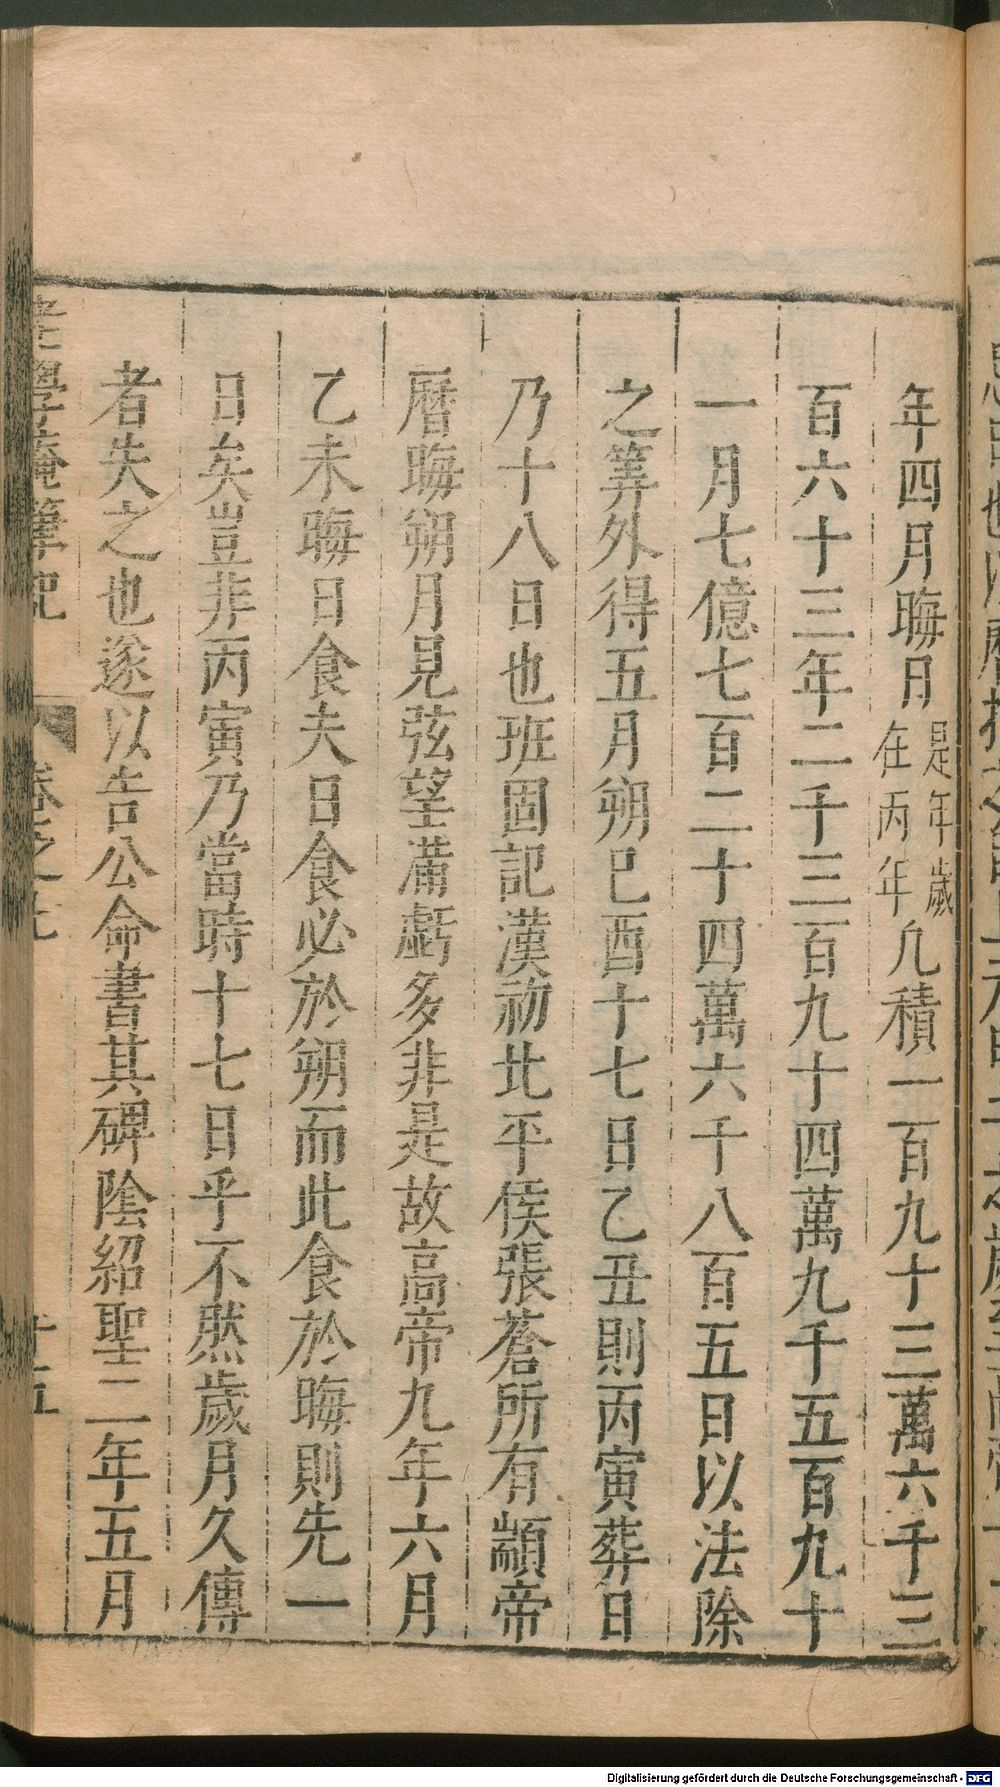 年四月晦日是年歲在丙年凡積一百九十三萬六千三
百六十三年二千三百九十四萬九千五百九十
一月七億七百二十四萬六千八百五日以法除
之筭外得五月朔巳酉十七日乙丑則丙寅葬日
乃十八日也班固記漢初北平侯張蒼所有顓帝
曆晦朔月見弦望滿虧多非是故高帝九年六月
乙未晦日食夫日食必於朔而此食於晦則先一
日矣豈非丙寅乃當時十七日乎不然歲月久傳
者失之也遂以告公命書其碑陰紹聖二年五月
老學庵筆記 卷之七 十五
Digitalisierung gefördert durch die Deutsche Forschungsgemeinschaft - DFG